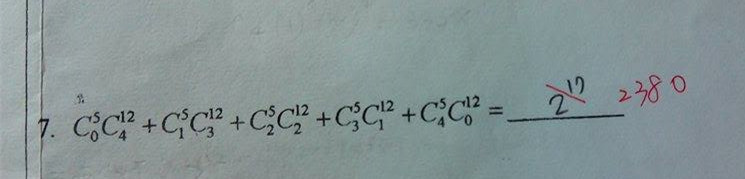 7. C₀⁵C₄¹² + C₁⁵C₃¹² + C₂⁵C₂¹² + C₃⁵C₁¹² + C₄⁵C₀¹² = 2¹⁷ 2380